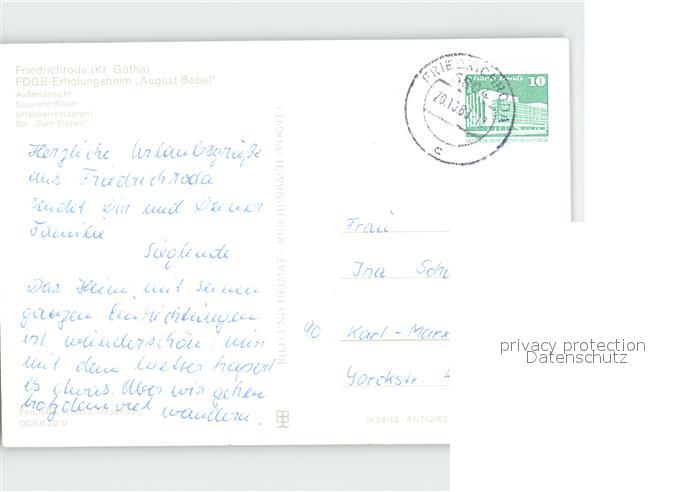 Friedrichroda (Kr. Gotha)
FDGB-Erholungsheim „August Bebel"
Außenansicht
Souvenir-Basar
Urlauberrestaurant
Bar „Zum Stollen"
FRIEDRICHRODA
10
c
Herzliche Urlaubsgrüße
aus Friedrichroda
sendet Dir und Deiner
Familie
Sieglinde
Das Heim mit seinen
ganzen Einrichtungen
ist wunderschön, nur
mit dem Wetter hapert
es etwas. Aber wir gehen
trotzdem viel wandern.
DDR 0,20 M
BILD UND HEIMAT · REICHENBACH (VOGTL)
III/26/13 · A1/712/83
Frau
Ina Sch
90 Karl-Marx
Yorckstr.
privacy protection
Datenschutz